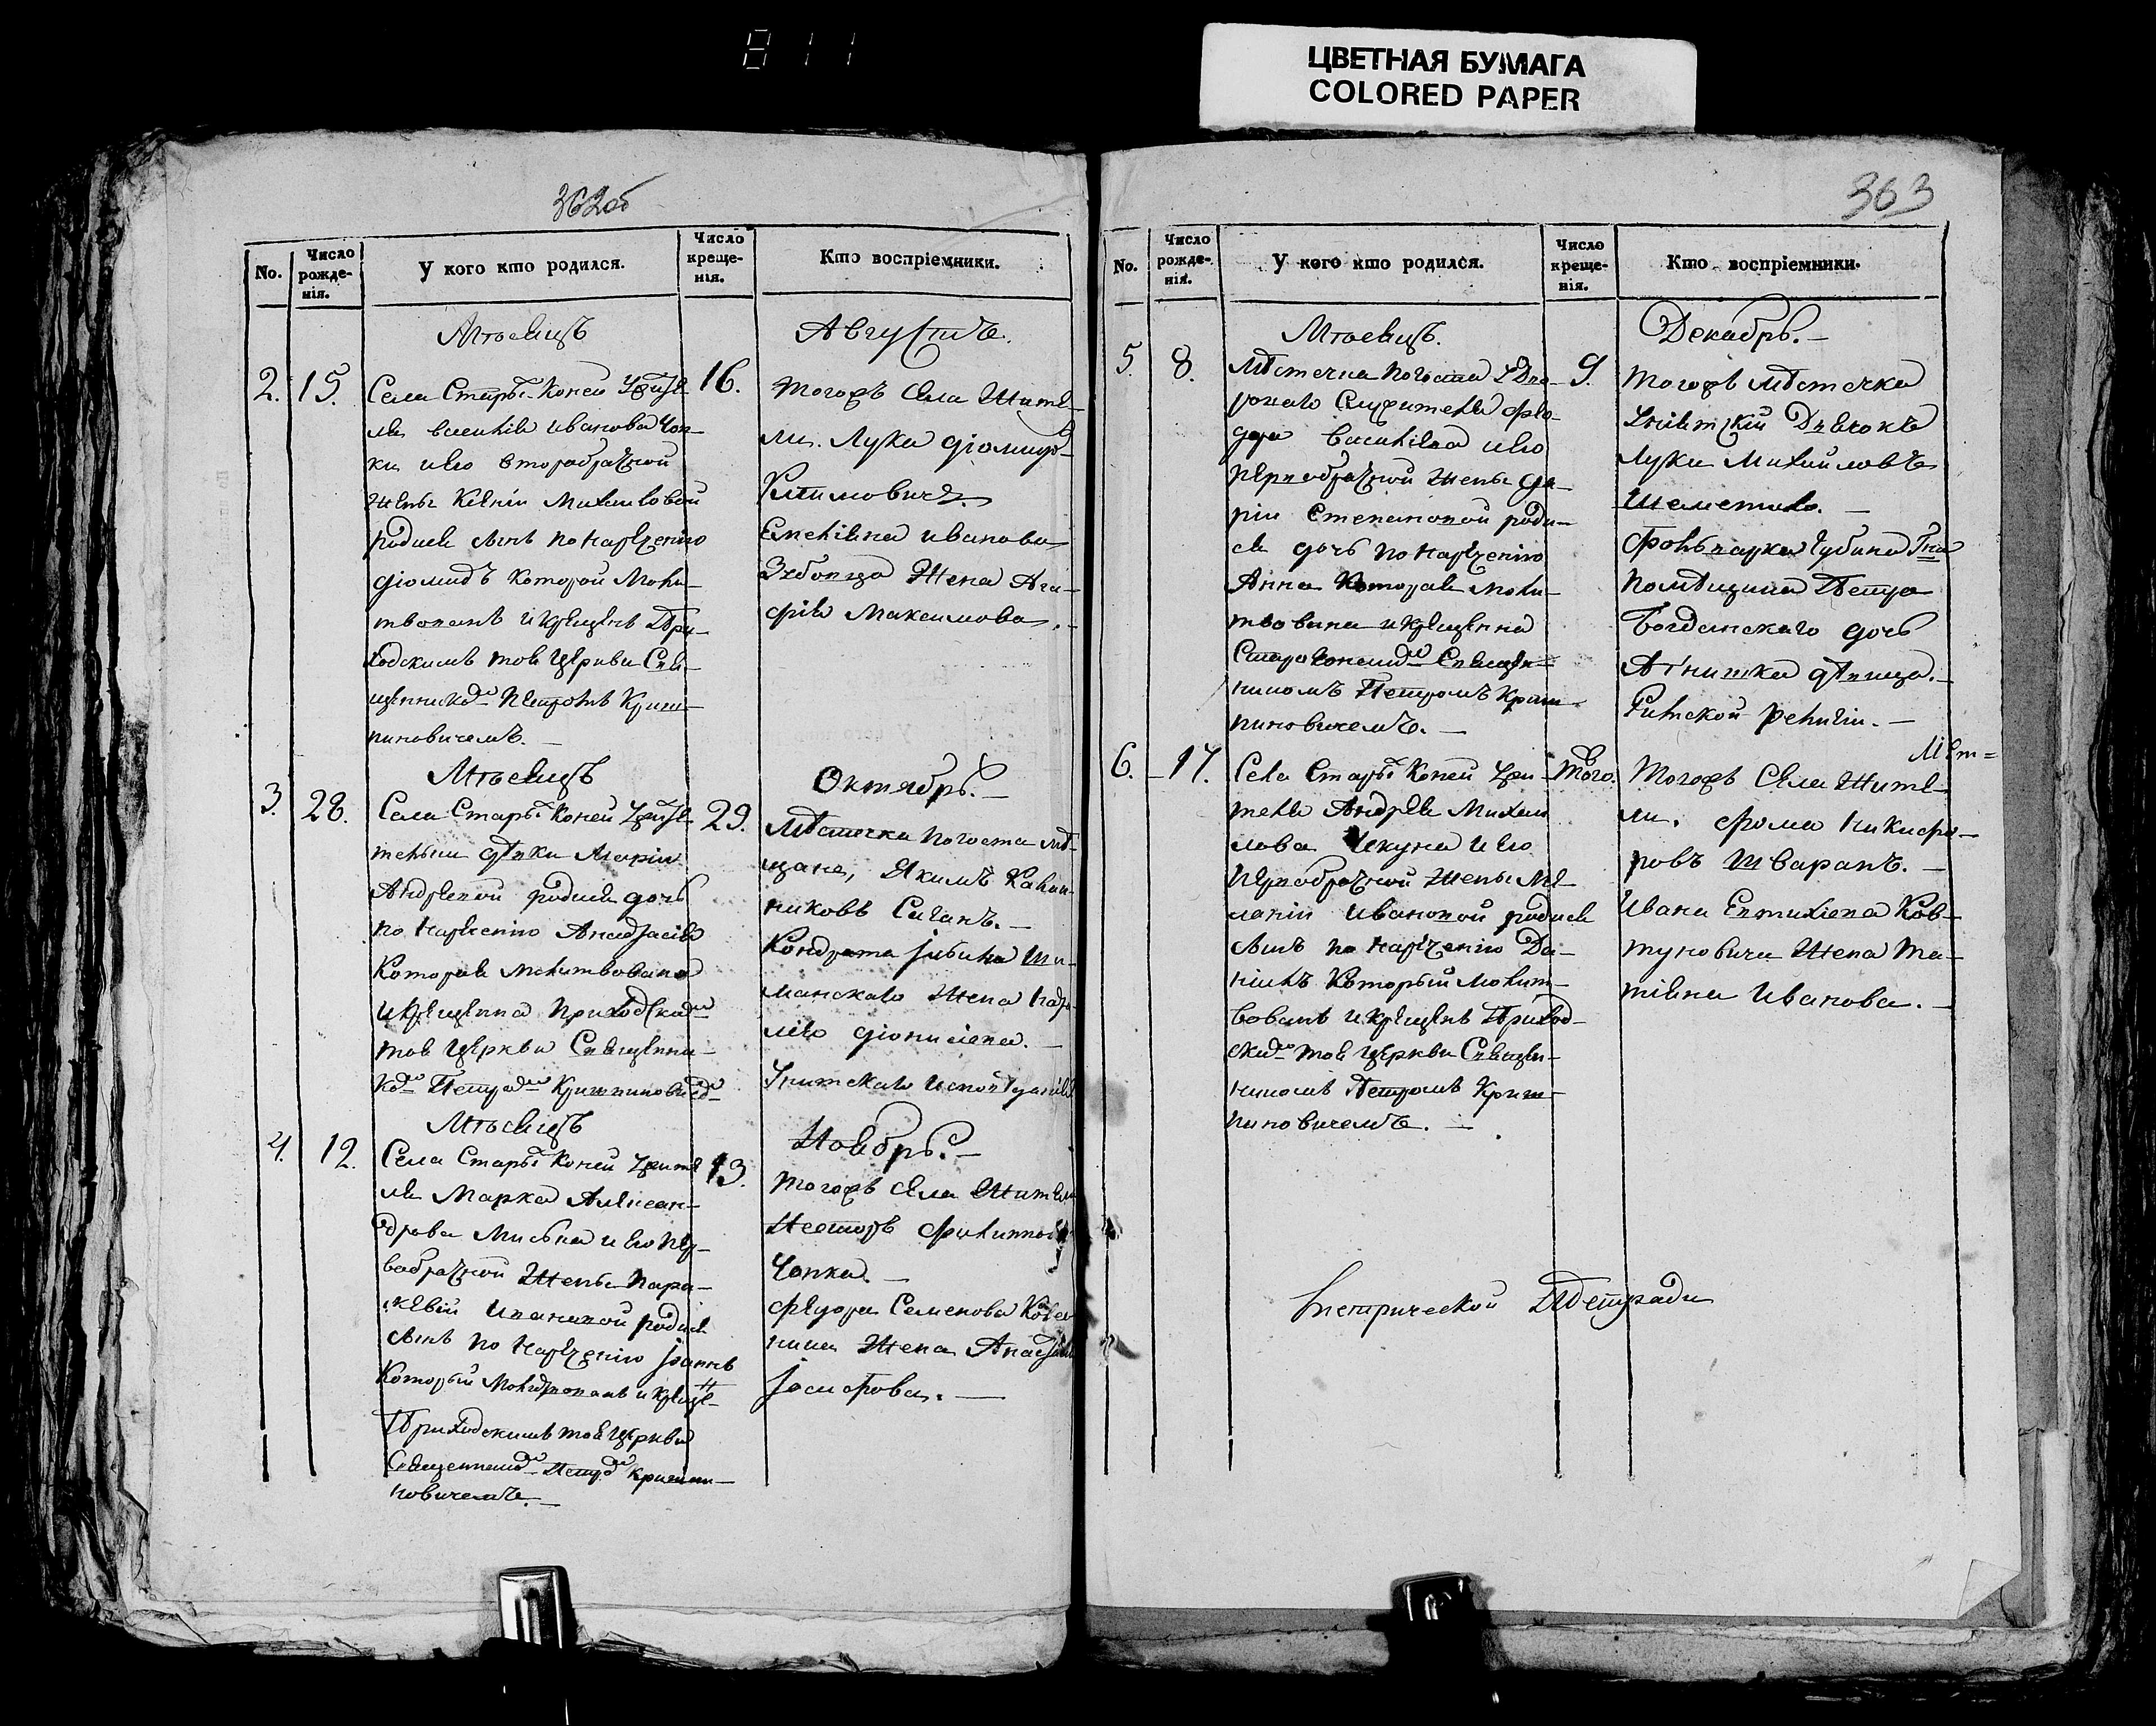 811
ЦВЕТНАЯ БУМАГА
COLORED PAPER
362об
No.
Число рожде-нія.
У кого кто родился.
Число креще-нія.
Кто воспріемники.
Мѣсяцъ
Августъ.
2. 15.
Села Стары Коней
ля Василія Иванова Чоп-
ки и Его второбрачной
жены Ксеніи Михаиловой
родися сынъ по нареченію
Діомидъ которой моли-
твованъ и крещенъ При-
ходскимъ тоя Церкви Свя-
щенникомъ Петромъ Криш-
пиновичемъ. —
16.
тогожъ села Жите-
ли. Лука
Климовичъ
Иванова
Жена Ага-
фія Максимова. —
Мѣсяцъ
Октябрь. —
3. 28.
Села Стары Коней
тельни дѣвки Маріи
Андреевой родися дочь
по нареченію Анастасія
Которая молитвована
и крещенна приходским
тоя Церкви Священни-
ком Петром Кришпинович
29.
мѣстечка Погоста мѣ-
щане, Якимъ
Сиганъ. —
Кондрата
манскаго Жена
Діонисіева. —
Унитскаго исповѣданія
Мѣсяцъ
Ноябрь. —
4. 12.
Села Стары Коней жите
ля Марка Алексан-
дрова и Его пер-
вобрачной Жены Пара-
скевіи Ивановой родися
сынъ по нареченію Іоаннъ
Который молитвованъ и креще-
Приходскимъ тоя Церкви
Священником Петром Кришпи-
новичемъ. —
13.
тогожъ села Жители
Несторъ Филиппов
Чопка. —
Федора Семенова
Жена Анастасія
Іосифова. —
363
No.
Число рожде-нія.
У кого кто родился.
Число креще-нія.
Кто воспріемники.
Мѣсяцъ.
Декабрь. —
5. 8.
Мѣстечка Погоста
Служителя Фео-
дора Василіева и Его
первобрачной жены Да-
ріи Степановой роди-
ся дочь по нареченію
Анна Которая моли-
твована и крещенна
Староконским Священ-
никомъ Петромъ Криш-
пиновичемъ. —
9.
тогожъ мѣстечка
Унитскій
Лука Михайловъ
Шеметило. —
помѣщика Петра
Богданскаго дочь
дѣвица. —
Римской религіи. —
6. 17.
Села Стары Коней жи-
теля Андрея Михаи
лова Чкуна и Его
первобрачной Жены Ме-
ланіи Ивановой родися
сынъ по нареченію Да-
ніилъ Который молит-
вованъ и крещенъ Приход-
ским тоя Церкви Священ-
никомъ Петромъ Криш-
пиновичемъ. —
Того.
Мет=
Тогожъ Села Жите-
ли. Фома Никифо-
ровъ Шваранъ. —
Ивана Евтихіева Ков-
туновича Жена Та-
тіяна Иванова. —
рической Тетради